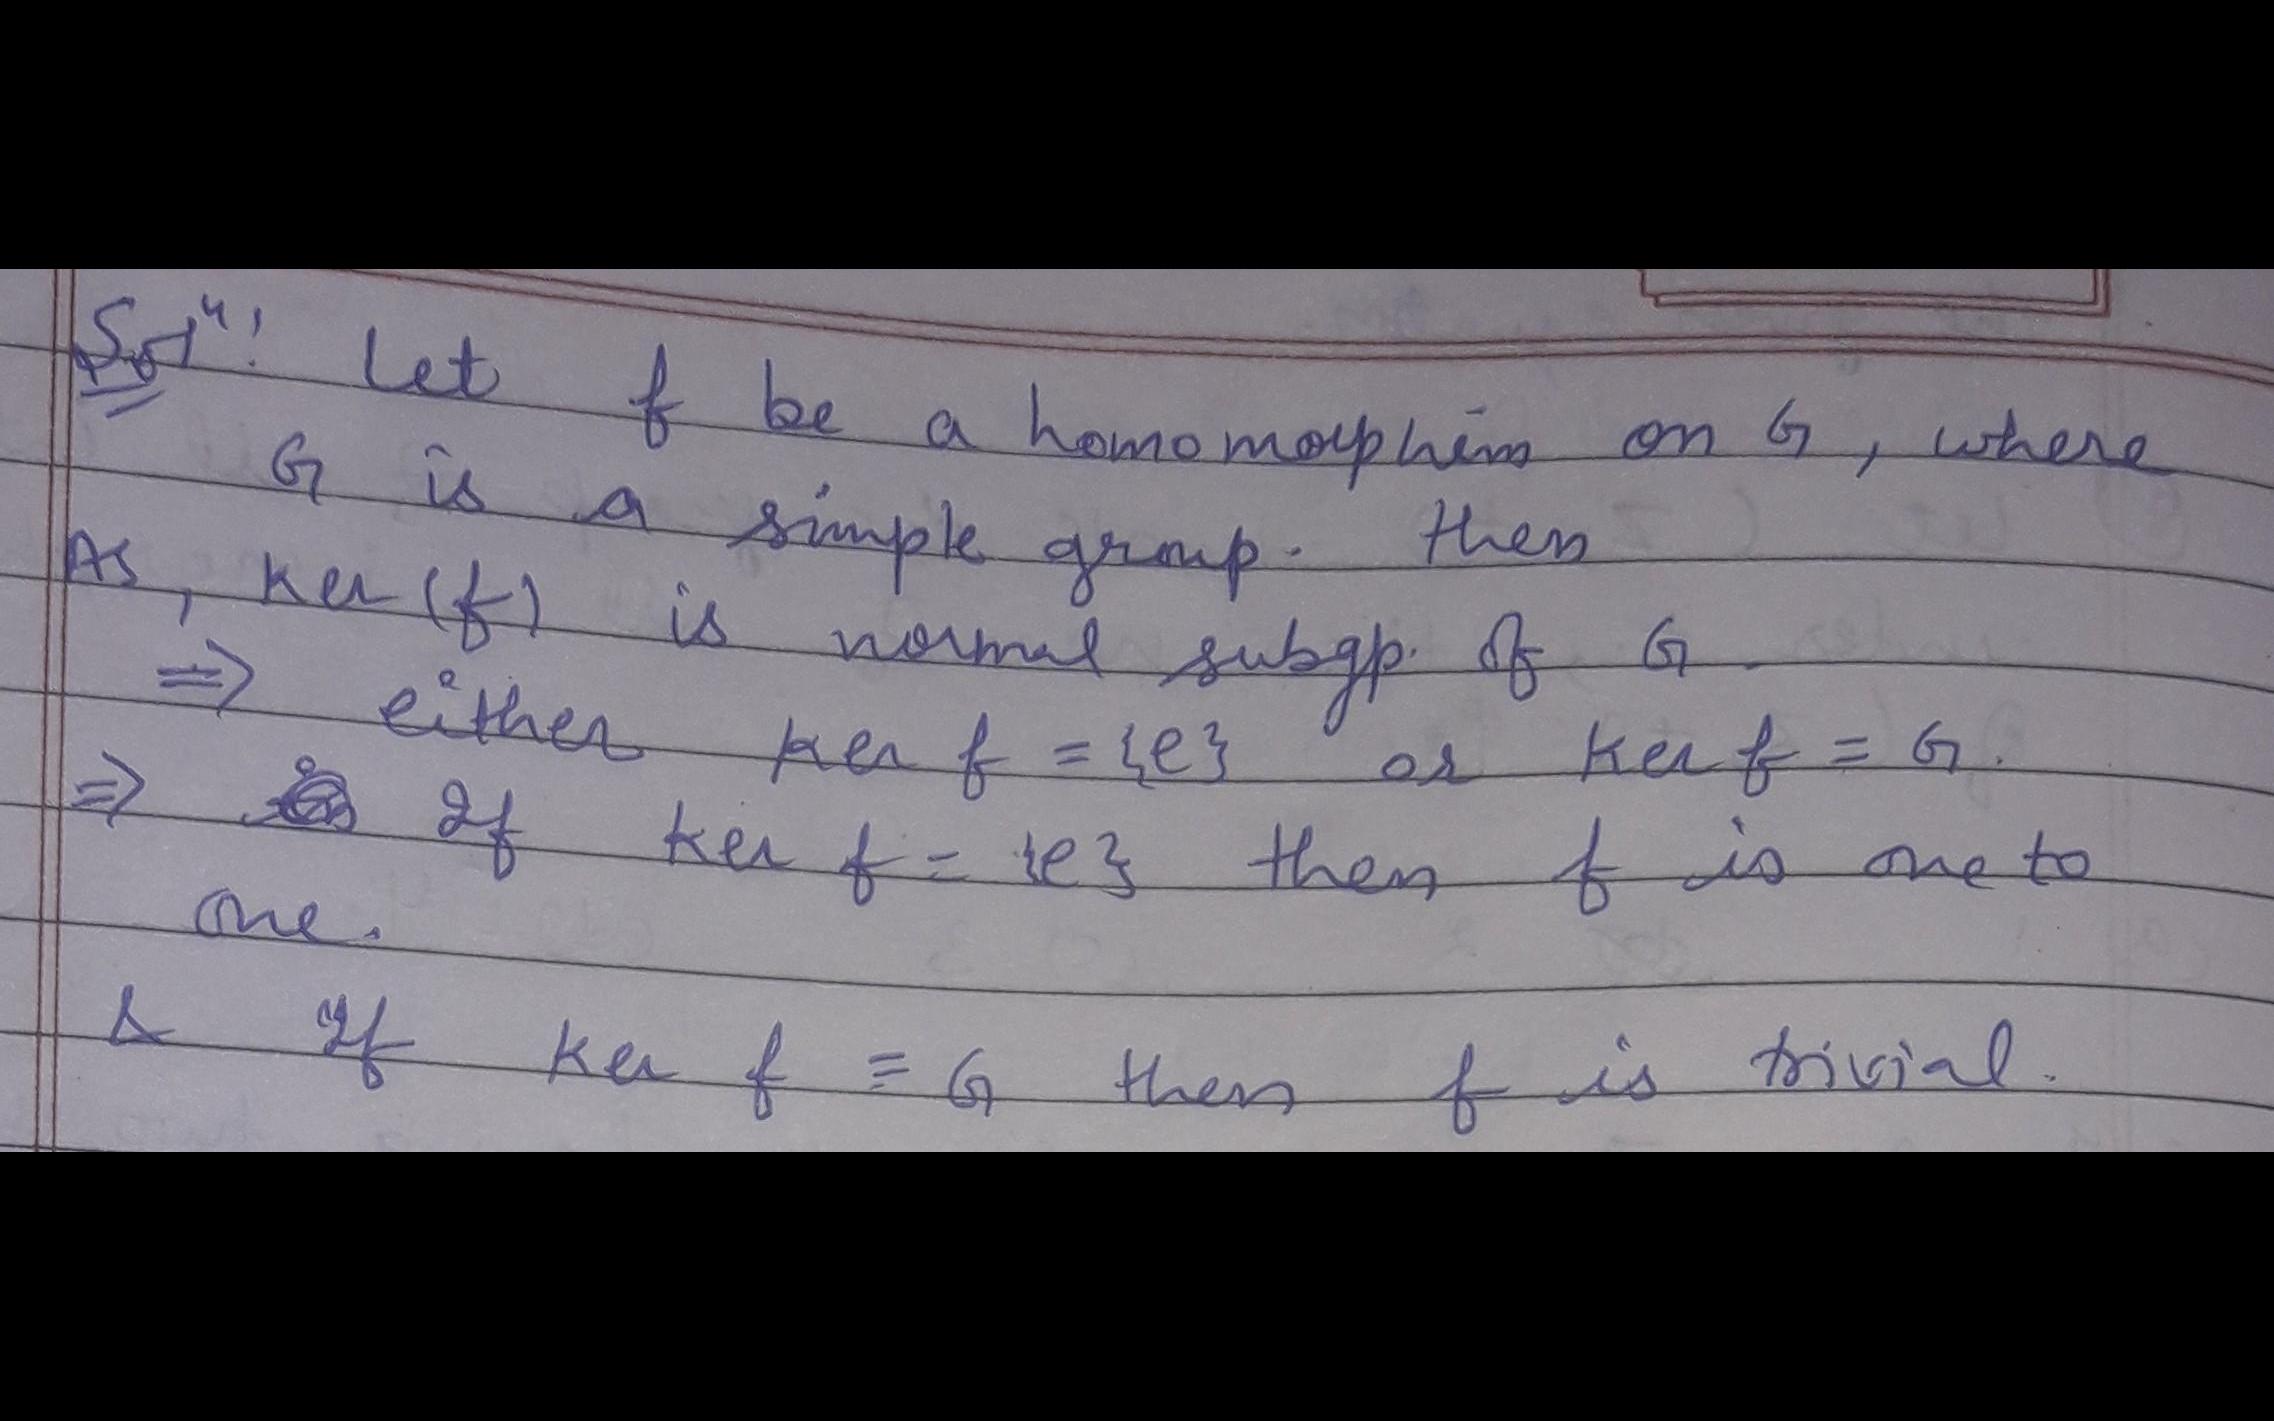 Solⁿ: Let f be a homomorphism on G, where
G is a simple group. then
As, Ker (f) is normal subgp. of G.
=> either Ker f = {e} or Ker f = G.
=> If Ker f = {e} then f is one to
one.
& If Ker f = G then f is trivial.